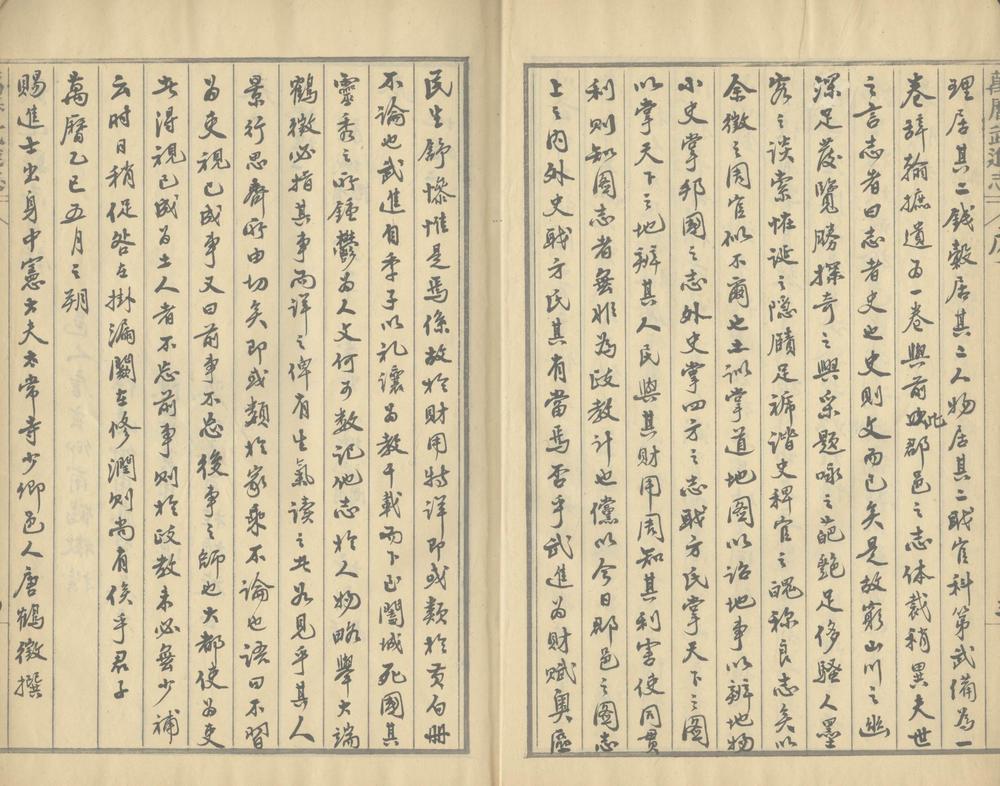 理居其二錢穀居其二人物居其二職官科第武備為一
卷辭翰摭遺為一卷與前此郡邑之志体裁稍異夫世
之言志者曰志者史也史則文而已矣是故窮山川之幽
深足資覽勝探奇之興采題咏之葩艷足侈騷人墨
客之談索恠誕之隱賾足裨諧史稗官之說稱良志矣以
余徵之周官似不爾也土訓掌道地圖以詔地事以辨地物
小史掌邦國之志外史掌四方之志職方氏掌天下之圖
以掌天下之地辨其人民與其財用周知其利害使同貫
利則知圖志者無非為政教計也儻以今日郡邑之圖志
上之內外史職方氏其有當焉否乎武進為財賦奧區
民生舒慘惟是焉係故於財用特詳即或類於黃白冊
不論也武進自季子以礼讓為教千載而下至闔城死國其
靈秀之所鍾鬱為人文何可數記他志於人物略舉大端
鶴徵必指其事而詳之俾有生氣讀之者如見乎其人
景行思齊所由切矣即或類於家乘不論也語曰不習
為吏視已成事又曰前事不忘後事之師也大都使為吏
者得視已成為士人者不忘前事則於政教未必無少補
云时日稍促咎在掛漏闕在修潤則尚有俟乎君子
萬曆乙巳五月之朔
賜進士出身中憲大夫太常寺少卿邑人唐鶴徵撰